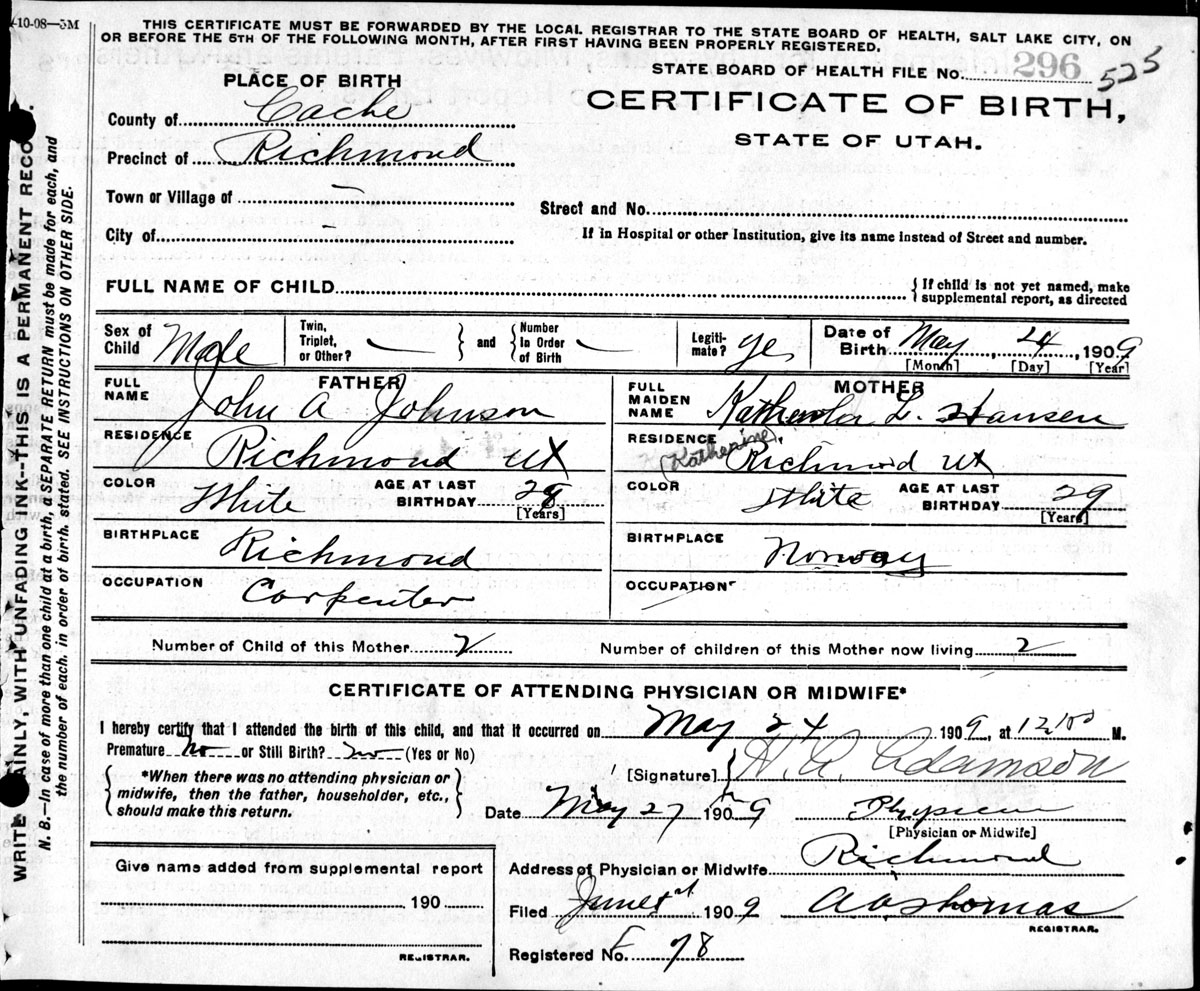 -10-08—5M
THIS CERTIFICATE MUST BE FORWARDED BY THE LOCAL REGISTRAR TO THE STATE BOARD OF HEALTH, SALT LAKE CITY, ON
OR BEFORE THE 5TH OF THE FOLLOWING MONTH, AFTER FIRST HAVING BEEN PROPERLY REGISTERED.
STATE BOARD OF HEALTH FILE No. 296 525
PLACE OF BIRTH
CERTIFICATE OF BIRTH,
STATE OF UTAH.
County of Cache
Precinct of Richmond
Town or Village of —
Street and No.
City of -
If in Hospital or other Institution, give its name instead of Street and number.
FULL NAME OF CHILD
{ If child is not yet named, make
supplemental report, as directed
Sex of Child Male
Twin, Triplet, or Other? } and { Number In Order of Birth
Legiti-mate? yes
Date of Birth May, 24, 1909
[Month] [Day] [Year]
FATHER
FULL NAME John A Johnson
RESIDENCE Richmond Ut
COLOR White AGE AT LAST BIRTHDAY 28
[Years]
BIRTHPLACE Richmond
OCCUPATION Carpenter
MOTHER
FULL MAIDEN NAME L. Hansen
(Katherine)
RESIDENCE Richmond Ut
COLOR White AGE AT LAST BIRTHDAY 29
[Years]
BIRTHPLACE Norway
OCCUPATION
Number of Child of this Mother 2
Number of children of this Mother now living 2
CERTIFICATE OF ATTENDING PHYSICIAN OR MIDWIFE*
I hereby certify that I attended the birth of this child, and that it occurred on May 24 1909, at 12 M.
Premature no or Still Birth? no (Yes or No)
{ *When there was no attending physician or
midwife, then the father, householder, etc.,
should make this return. }
[Signature] { H. A. Adamson
Date May 27 1909 Physician
[Physician or Midwife]
Address of Physician or Midwife Richmond
Filed June 1st 1909
REGISTRAR.
Registered No. 78
Give name added from supplemental report
190
REGISTRAR.
WRITE PLAINLY, WITH UNFADING INK--THIS IS A PERMANENT RECO .
N. B.—In case of more than one child at a birth, a SEPARATE RETURN must be made for each, and
the number of each, in order of birth, stated. SEE INSTRUCTIONS ON OTHER SIDE.